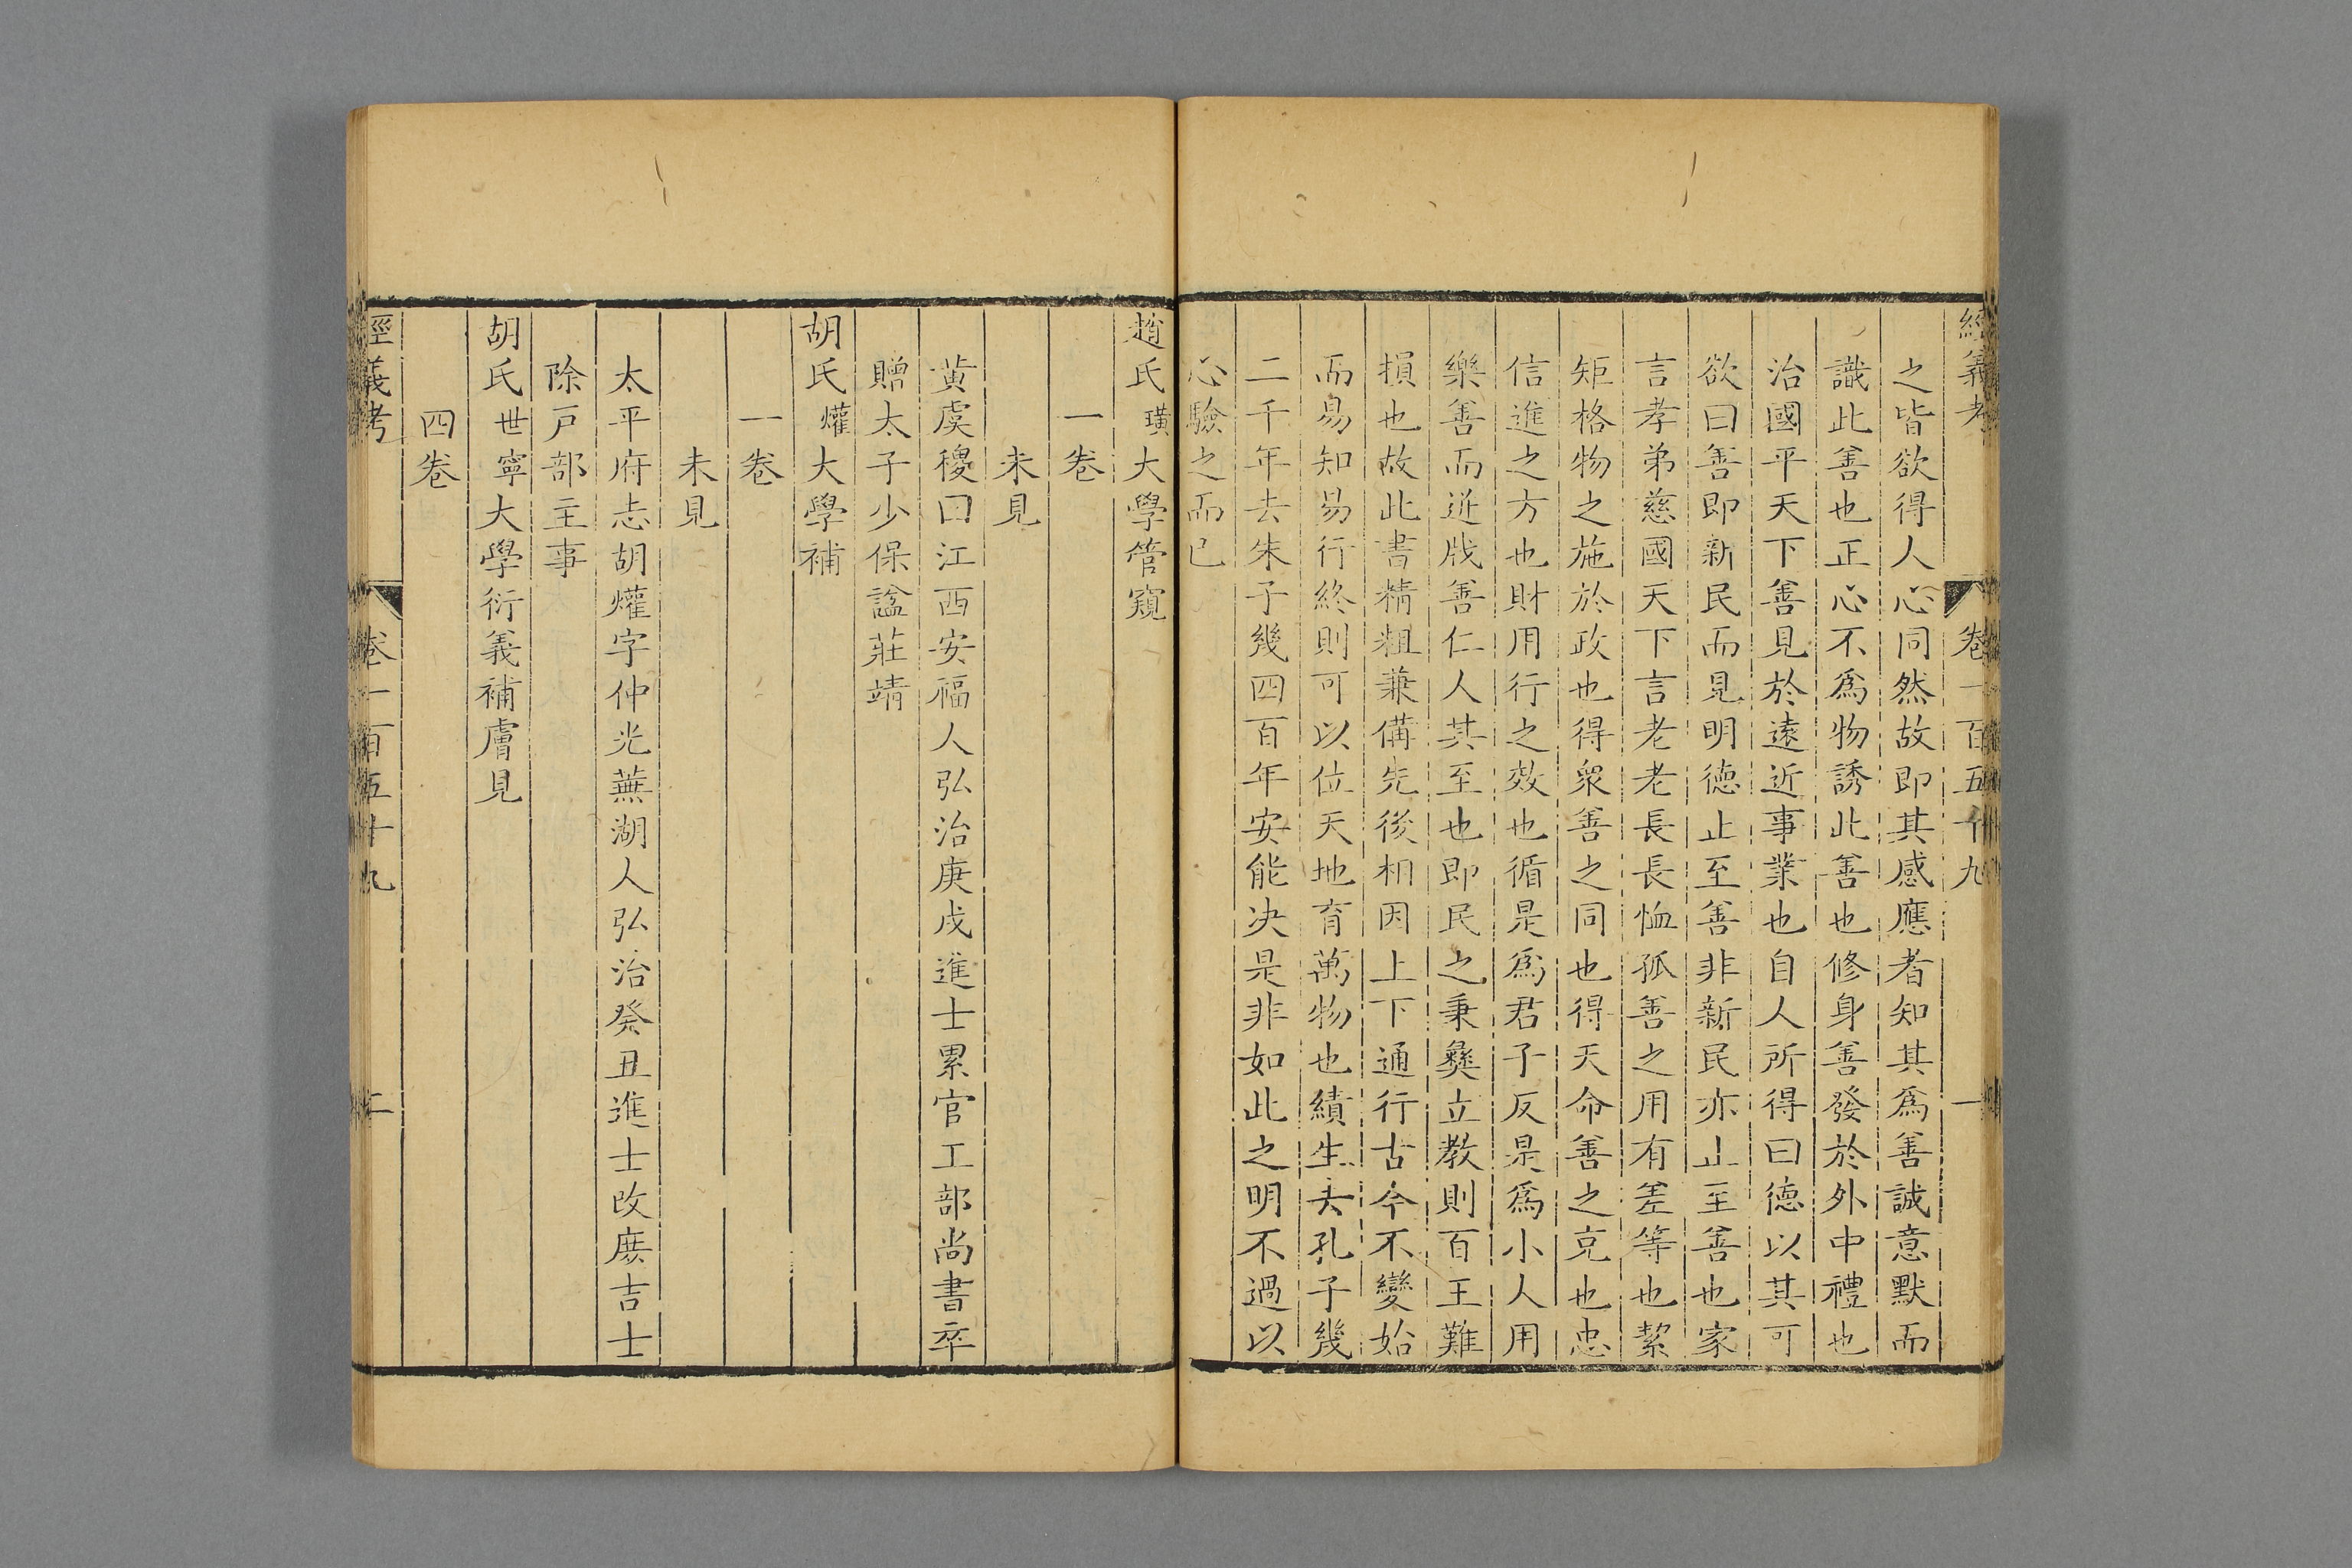 經義考 卷一百五十九 一
之皆欲得人心同然故即其感應者知其爲善誠意默而
識此善也正心不爲物誘此善也修身善發於外中禮也
治國平天下善見於遠近事業也自人所得曰德以其可
欲曰善即新民而見明德止至善非新民亦止至善也家
言孝弟慈國天下言老老長長恤孤善之用有差等也絜
矩格物之施於政也得衆善之同也得天命善之克也忠
信進之方也財用行之效也循是爲君子反是爲小人用
樂善而迸戕善仁人其至也即民之秉彝立教則百王難
損也故此書精粗兼備先後相因上下通行古今不變始
而易知易行終則可以位天地育萬物也績生去孔子幾
二千年去朱子幾四百年安能决是非如此之明不過以
心驗之而已
趙氏璜大學管窺
一卷
未見
黃虞稷曰江西安福人弘治庚戌進士累官工部尚書卒
贈太子少保諡莊靖
胡氏爟大學補
一卷
未見
太平府志胡爟字仲光蕪湖人弘治癸丑進士改庶吉士
除戸部主事
胡氏世寧大學衍義補膚見
四卷
經義考 卷一百五十九 二